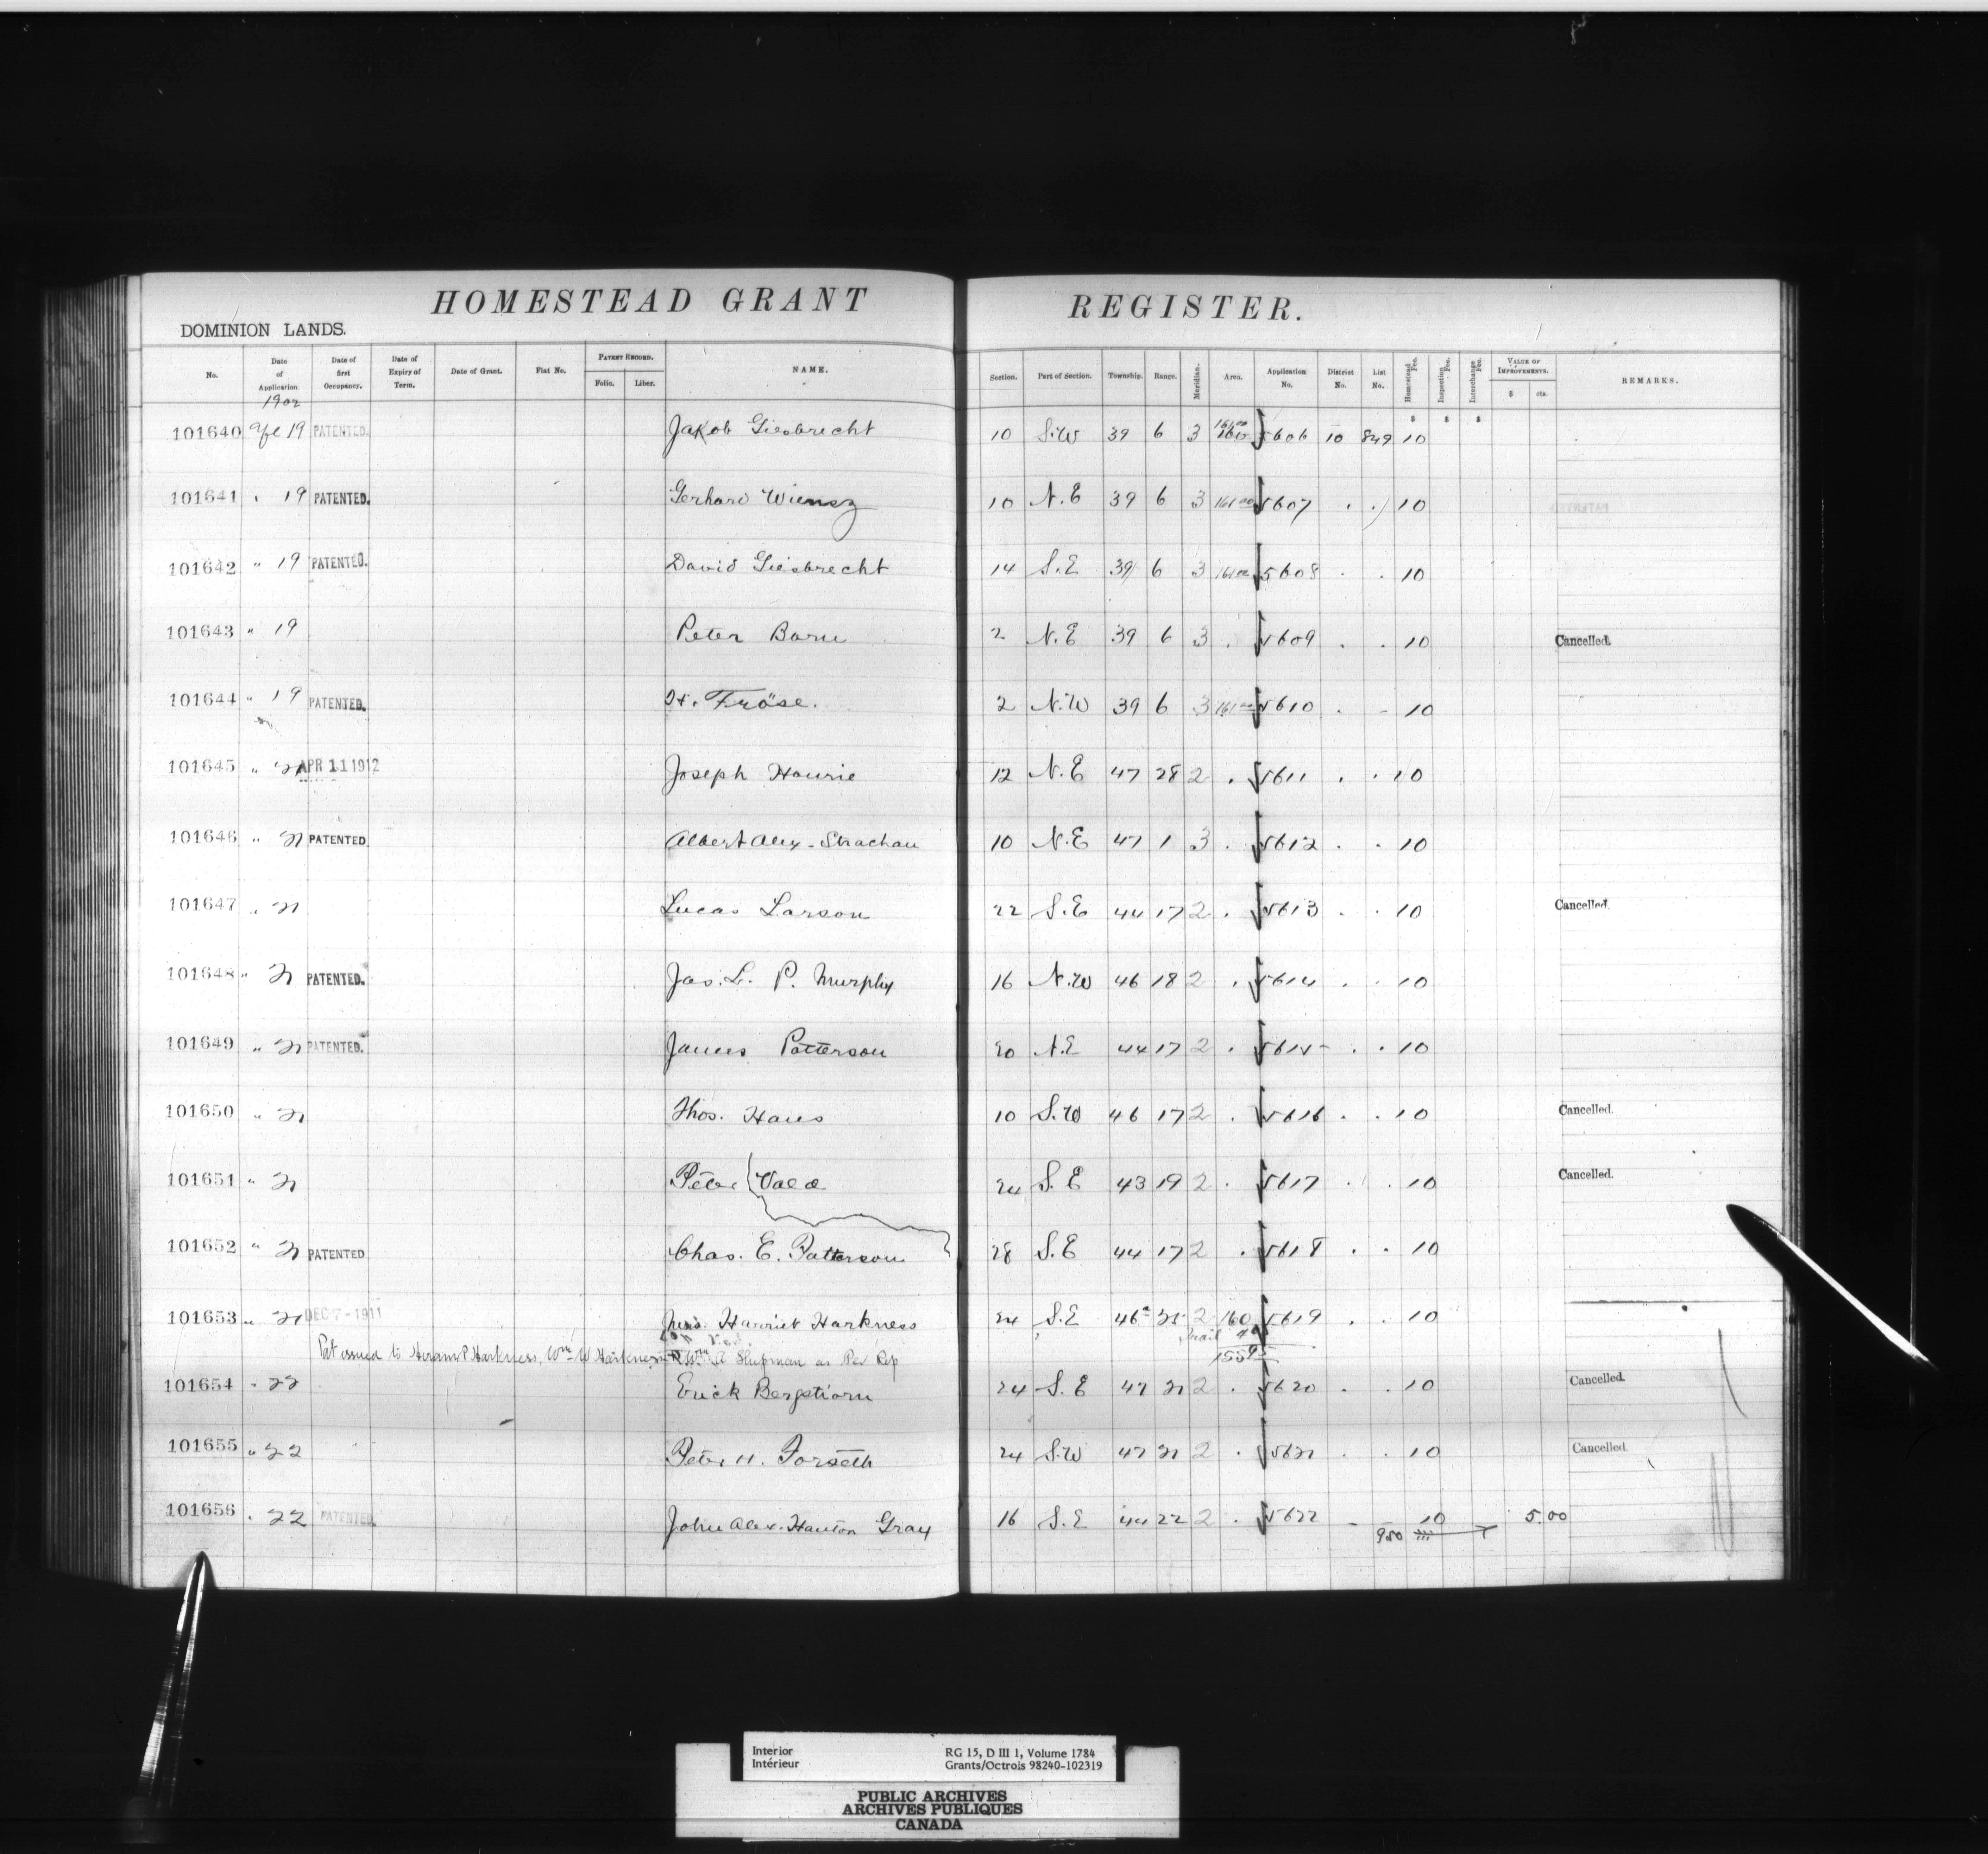 HOMESTEAD GRANT REGISTER.
DOMINION LANDS.
No. Date of Application. Date of first Occupancy. Date of Expiry of Term. Date of Grant. Fiat No. PATENT RECORD. Folio. Liber. NAME. Section. Part of Section. Township. Range. Meridian. Area. Application No. District No. List No. Homestead Fee. Inspection Fee. Interchange Fee. VALUE OF IMPROVEMENTS. $ cts. REMARKS.
1902
101640 Apl 19 PATENTED. Jakob Giesbrecht 10 S.W 39 6 3 161.00 5606 10 849 10
101641 " 19 PATENTED. Gerhard Wiensz 10 N.E 39 6 3 161.00 5607 . . 10
101642 " 19 PATENTED. David Giesbrecht 14 S.E 39 6 3 161.00 5608 . . 10
101643 " 19 Peter Born 2 N.E 39 6 3 . 5609 . . 10 Cancelled.
101644 " 19 PATENTED. H. Fröse. 2 N.W 39 6 3 161.00 5610 . . 10
101645 " 21 APR 11 1912 Joseph Hourie 12 N.E 47 28 2 . 5611 . . 10
101646 " 21 PATENTED Albert Alex. Strachan 10 N.E 47 1 3 . 5612 . . 10
101647 " 21 Lucas Larson 22 S.E 44 17 2 . 5613 . . 10 Cancelled.
101648 " 21 PATENTED. Jas. L. P. Murphy 16 N.W 46 18 2 . 5614 . . 10
101649 " 21 PATENTED. James Patterson 20 N.E 44 17 2 . 5615 . . 10
101650 " 21 Thos. Haws 10 S.W 46 17 2 . 5616 . . 10 Cancelled.
101651 " 21 Peter 24 S.E 43 19 2 . 5617 . . 10 Cancelled.
101652 " 21 PATENTED Chas. E. Patterson 28 S.E 44 17 2 . 5618 . . 10
101653 " 21 DEC 7 - 1911 Mrs. Harriet Harkness 24 S.E 46 2 160 5619 . . 10
Trail
Pat issued to Hiram P Harkness, Wm W Harkness & Wm A Shipman as Per Rep 155
101654 " 22 Erick Bergstrom 24 S.E 47 21 2 . 5620 . . 10 Cancelled.
101655 " 22 Peter H. Forseth 24 S.W 47 21 2 . 5621 . . 10 Cancelled.
101656 . 22 PATENTED. John Alex. Gray 16 S.E 44 22 2 . 5622 10 5.00
950
Interior RG 15, D III 1, Volume 1784
Intérieur Grants/Octrois 98240-102319
PUBLIC ARCHIVES
ARCHIVES PUBLIQUES
CANADA